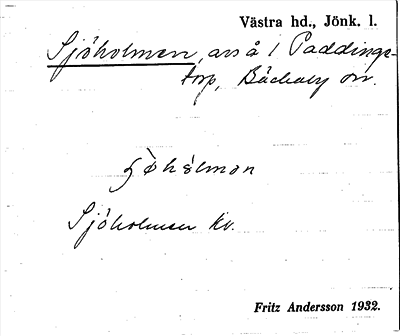 Västra hd., Jönk. l.
Sjöholmen, avs å 1 Paddings-
torp, Bäckaby sn.
Sjöholmen kv.
Fritz Andersson 1932.